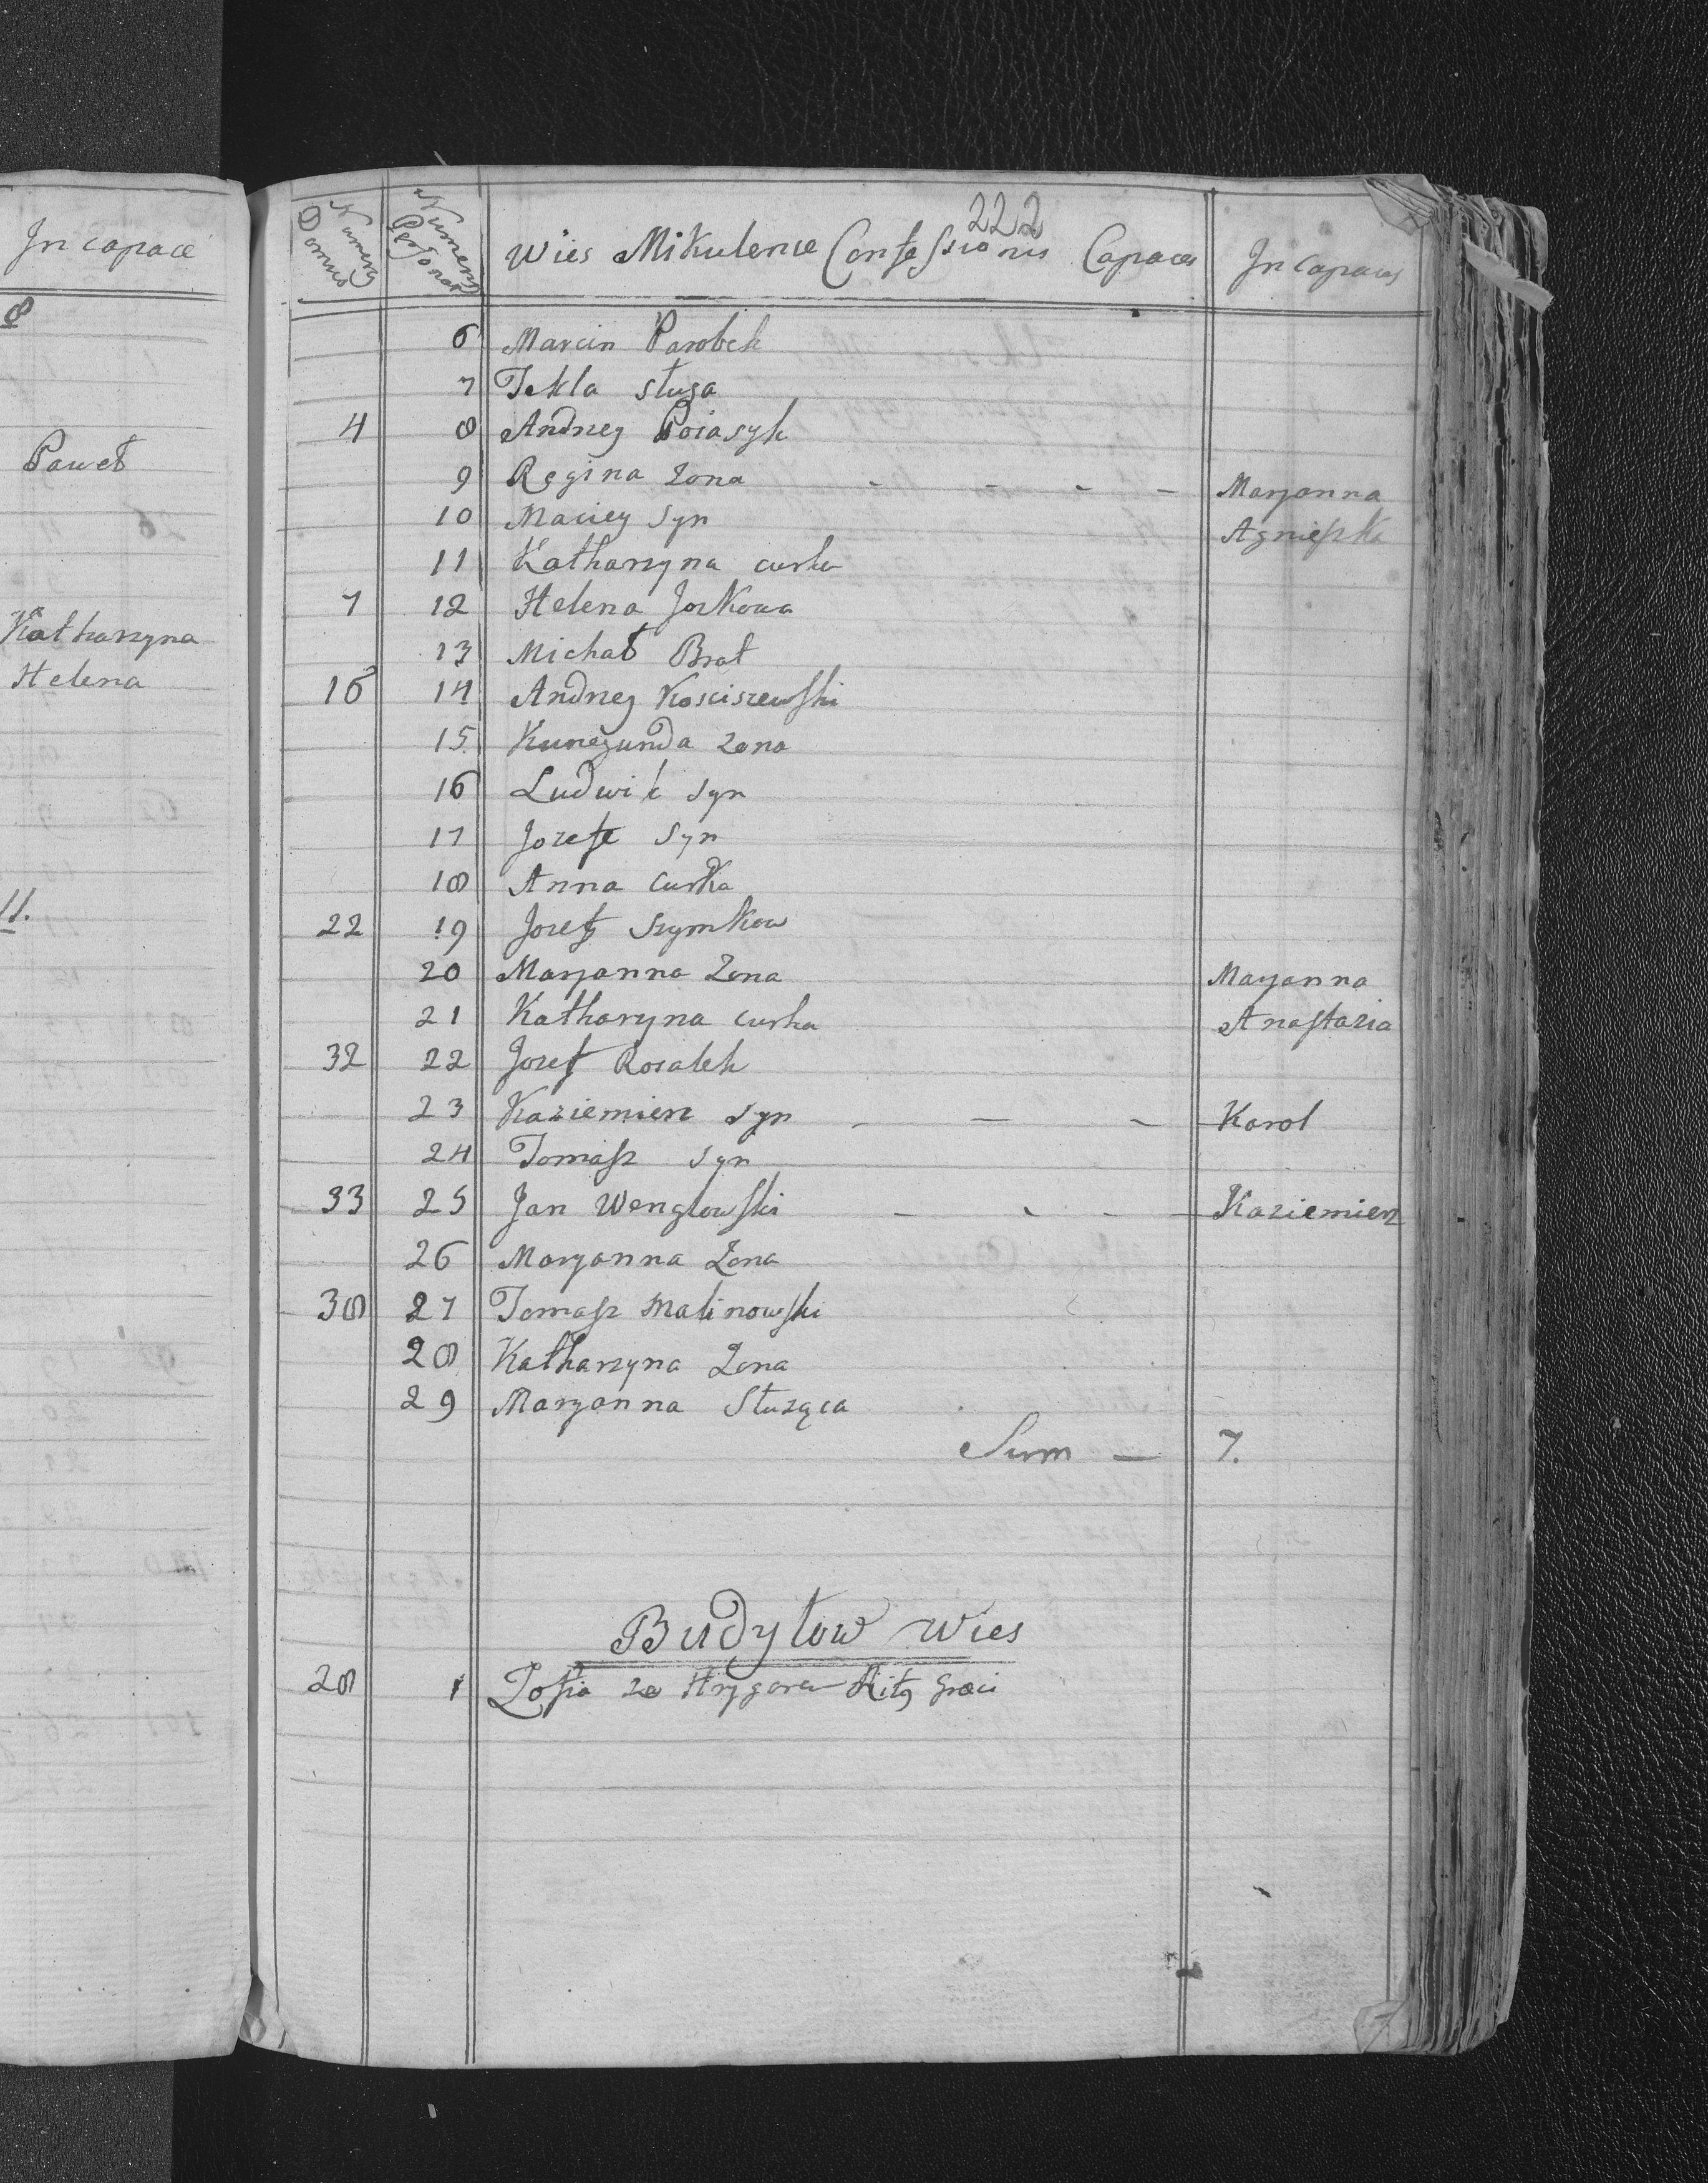 In capace
8
Paweł
Katharzyna
Helena
11.
222
Numerus Domus
Numerus Personar
Wies Mikulence Confessionis Capaces
In Capaces
6 Marcin Parobek
7 Tekla sługa
4 8 Andrzey Poiasyk
9 Regina Zona - - - - Maryanna
10 Maciey Syn Agnieszka
11 Katharzyna curka
7 12 Helena Jorkowa
13 Michał Brat
16 14 Andrzey Kosciszewski
15 Kunegunda Zona
16 Ludwik Syn
17 Jozef Syn
18 Anna Curka
22 19 Jozef Szymkow
20 Maryanna Zona Maryanna
21 Katharyna curka Anastazia
32 22 Jozef Rosalek
23 Kaziemierz syn - - - Karol
24 Tomasz syn
33 25 Jan Wenglowski - - - - Kaziemierz
26 Maryanna Zona
38 27 Tomasz Malinowski
28 Katharzyna Zona
29 Maryanna Służąca
Sum — 7.
Budyłow Wies
28 1 Zofia za Hrygorem Rit9 Graeci